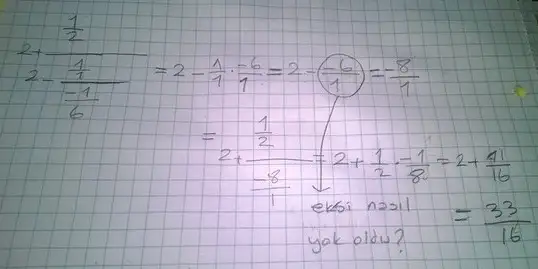 2 + (1/2) / (2 - (1/1) / (-1/6)) = 2 - 1/1 · -6/1 = 2 - -6/1 = -8/1
= 2 + (1/2) / (-8/1) = 2 + 1/2 · -1/8 = 2 + 1/16
eksi nasıl = 33/16
yok oldu?